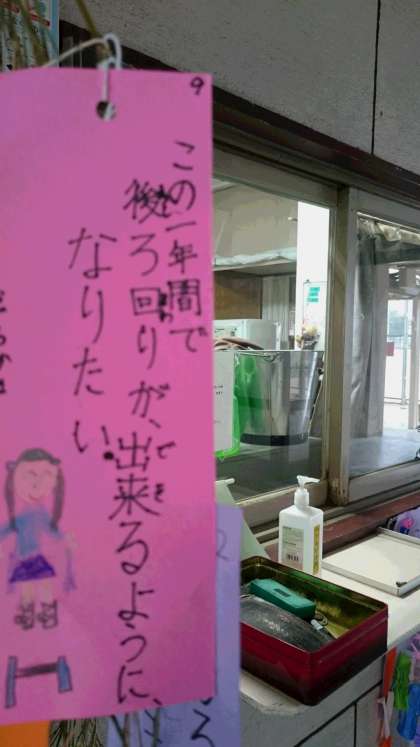 9
この一年間で
後ろ回りが、出来るように、
なりたい。
2
ろ